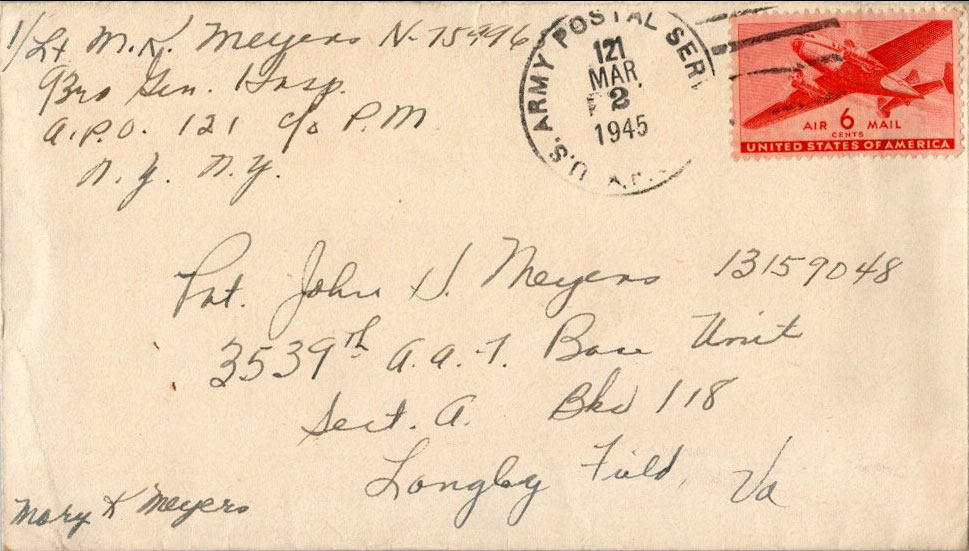 1/Lt M.K. Meyers N-75996
93rd Gen. Hosp.
A.P.O. 121 c/o P.M
N.Y. N.Y.
U.S. ARMY POSTAL SER
121
MAR
2
1945
A.P.
AIR 6 MAIL
CENTS
UNITED STATES OF AMERICA
Pvt. John J. Meyers 13159048
3539th A.A.F. Base Unit
Sect. A. Bks 118
Langley Field, Va
Mary K Meyers